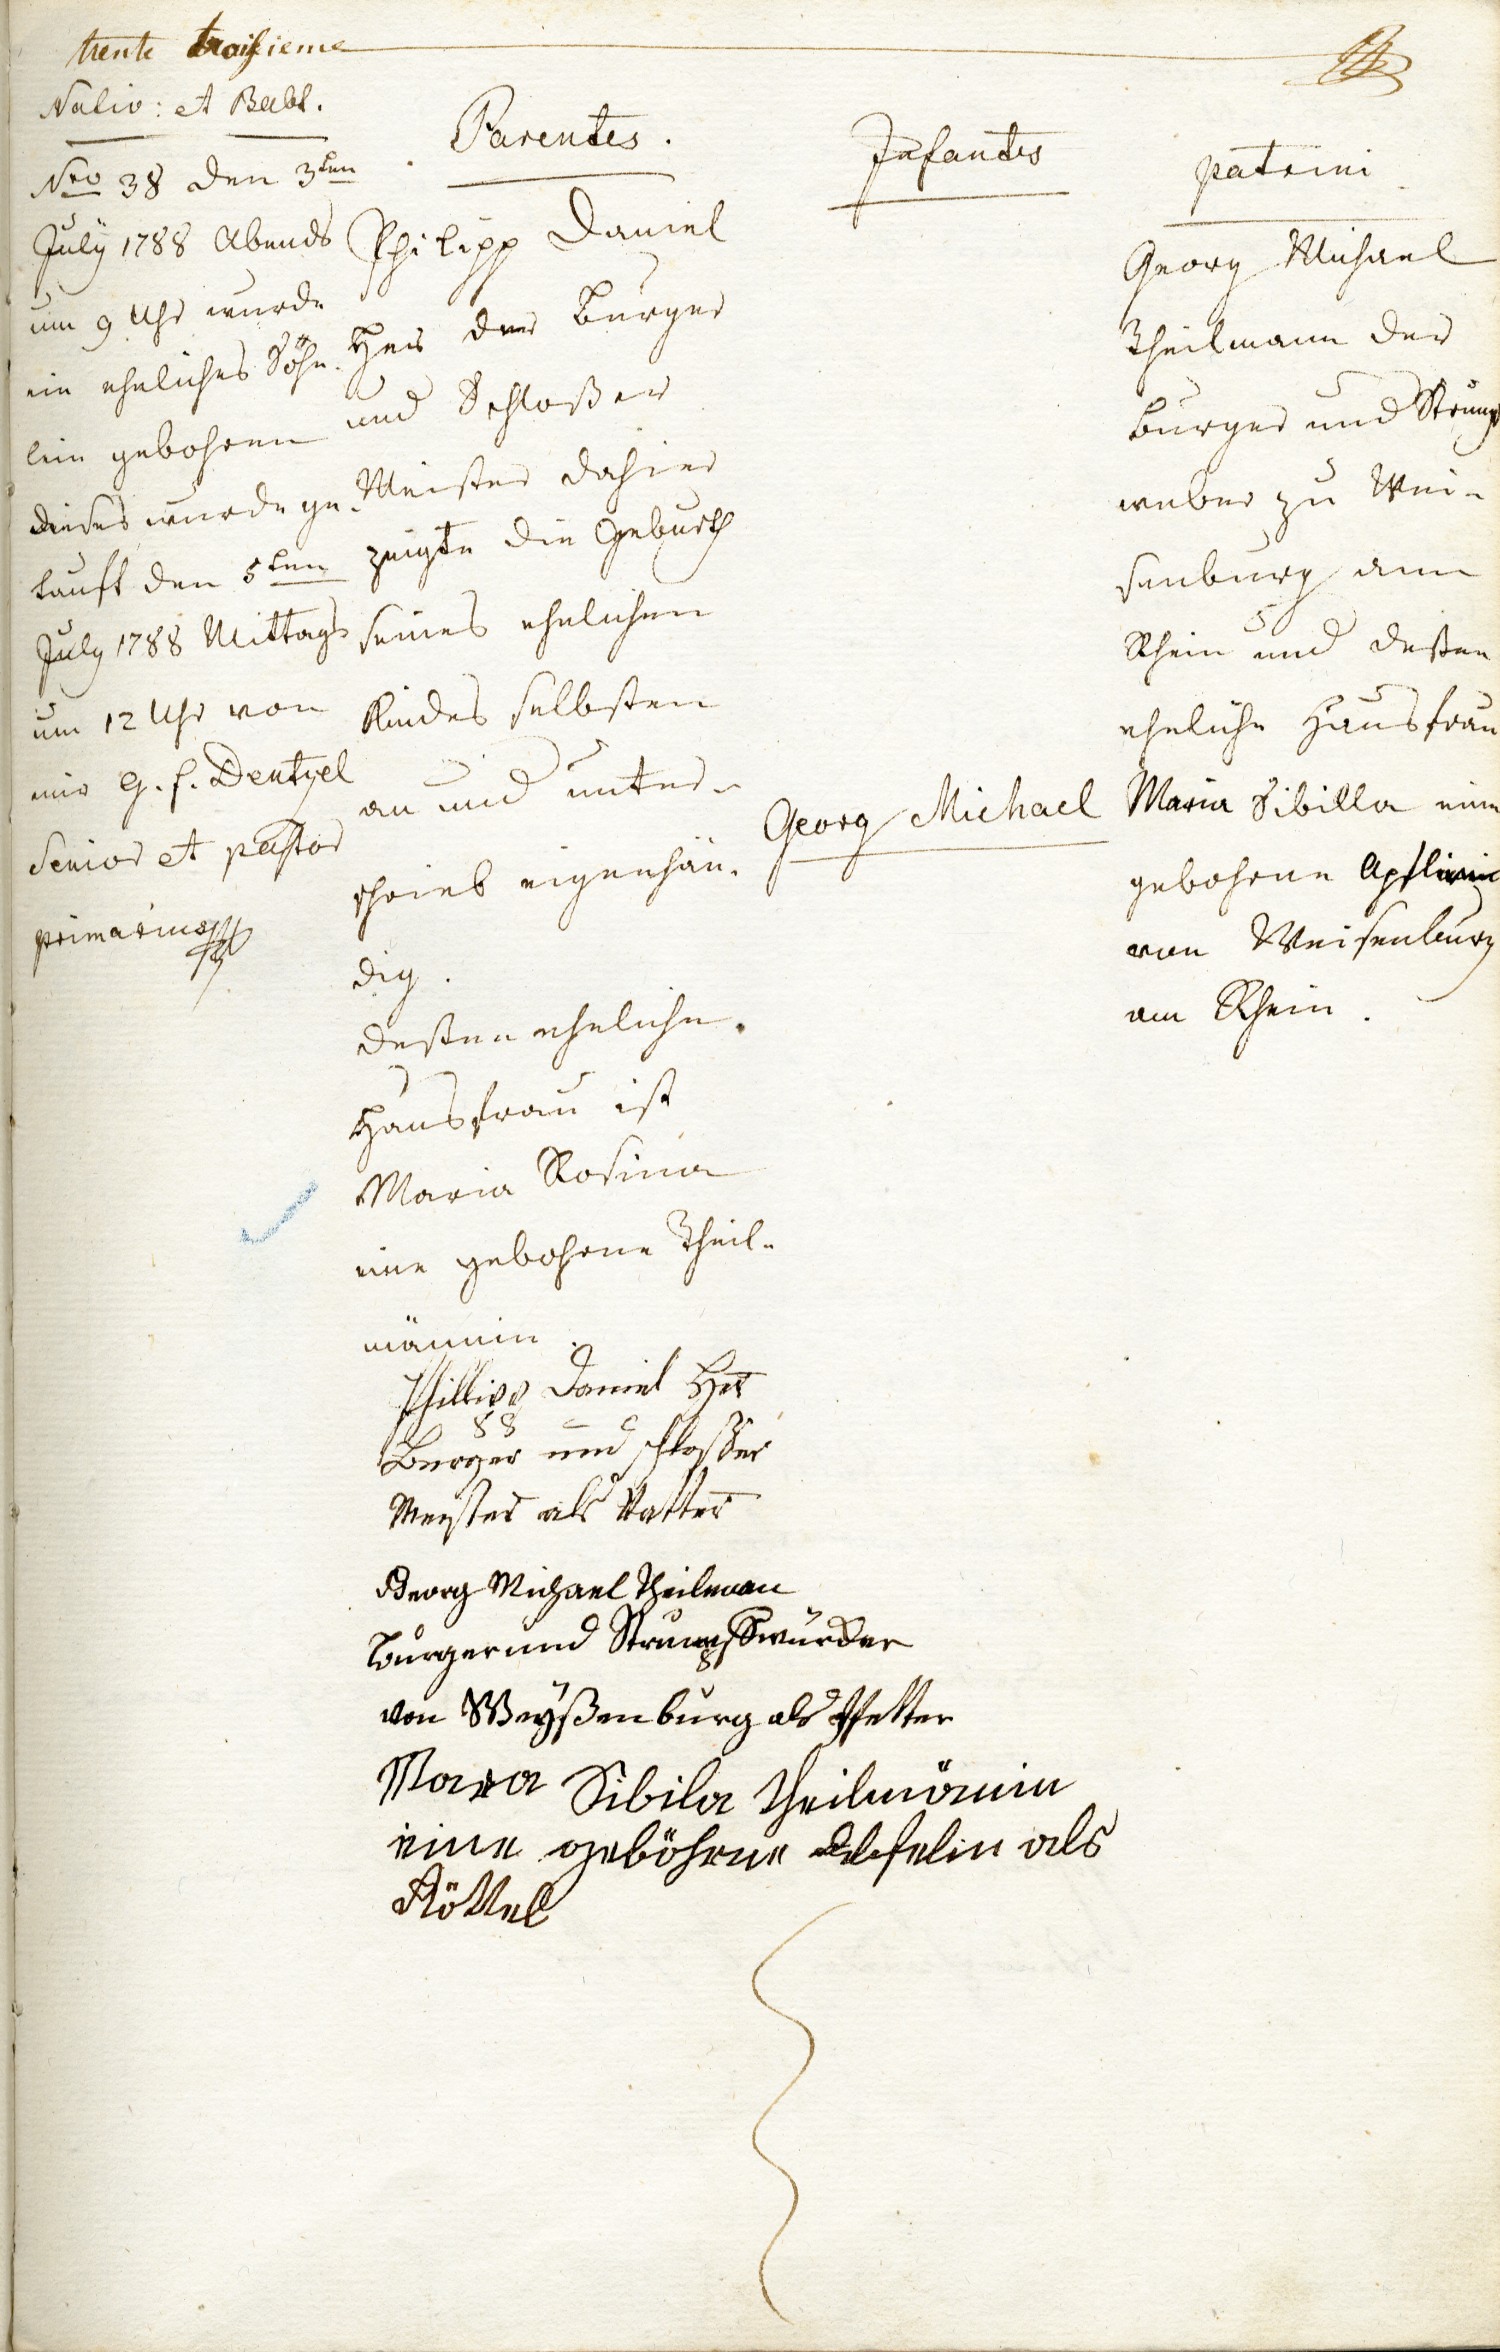 trente troisieme
Nativ: et Babt.
Nro 38 den 3ten
July 1788 Abends
um 9 Uhr wurde
ein eheliches Söhn-
lein gebohren
dieses wurde ge-
tauft den 5ten
July 1788 Mittags
um 12 Uhr von
mir G. f. Dentzel
Senior et pastor
primarius
Parentes.
Philipp Daniel
Her der Burger
und Schloßer
Meister dahier
zeigte die Geburth
seines ehelichen
Kindes selbsten
an und unter-
schrieb eigenhän-
dig.
deßen eheliche
Hausfrau ist
Maria Rosina
eine gebohrne Theil-
männin.
Phillipp Daniel Her
Burger und schlosser
Meister als Vatter
Georg Michael Theilman
burger und Strumpfwürcker
von Weyßenburg als Pfetter
Maria Sibila theilmänin
eine geböhrne als
Göttel
Infantes
Georg Michael
patrini
Georg Michael
Theilmann der
Burger und Strumpf
weber zu Wei-
senburg am
Rhein und deßen
eheliche Hausfrau
Maria Sibilla eine
gebohrne
von Weisenburg
am Rhein.